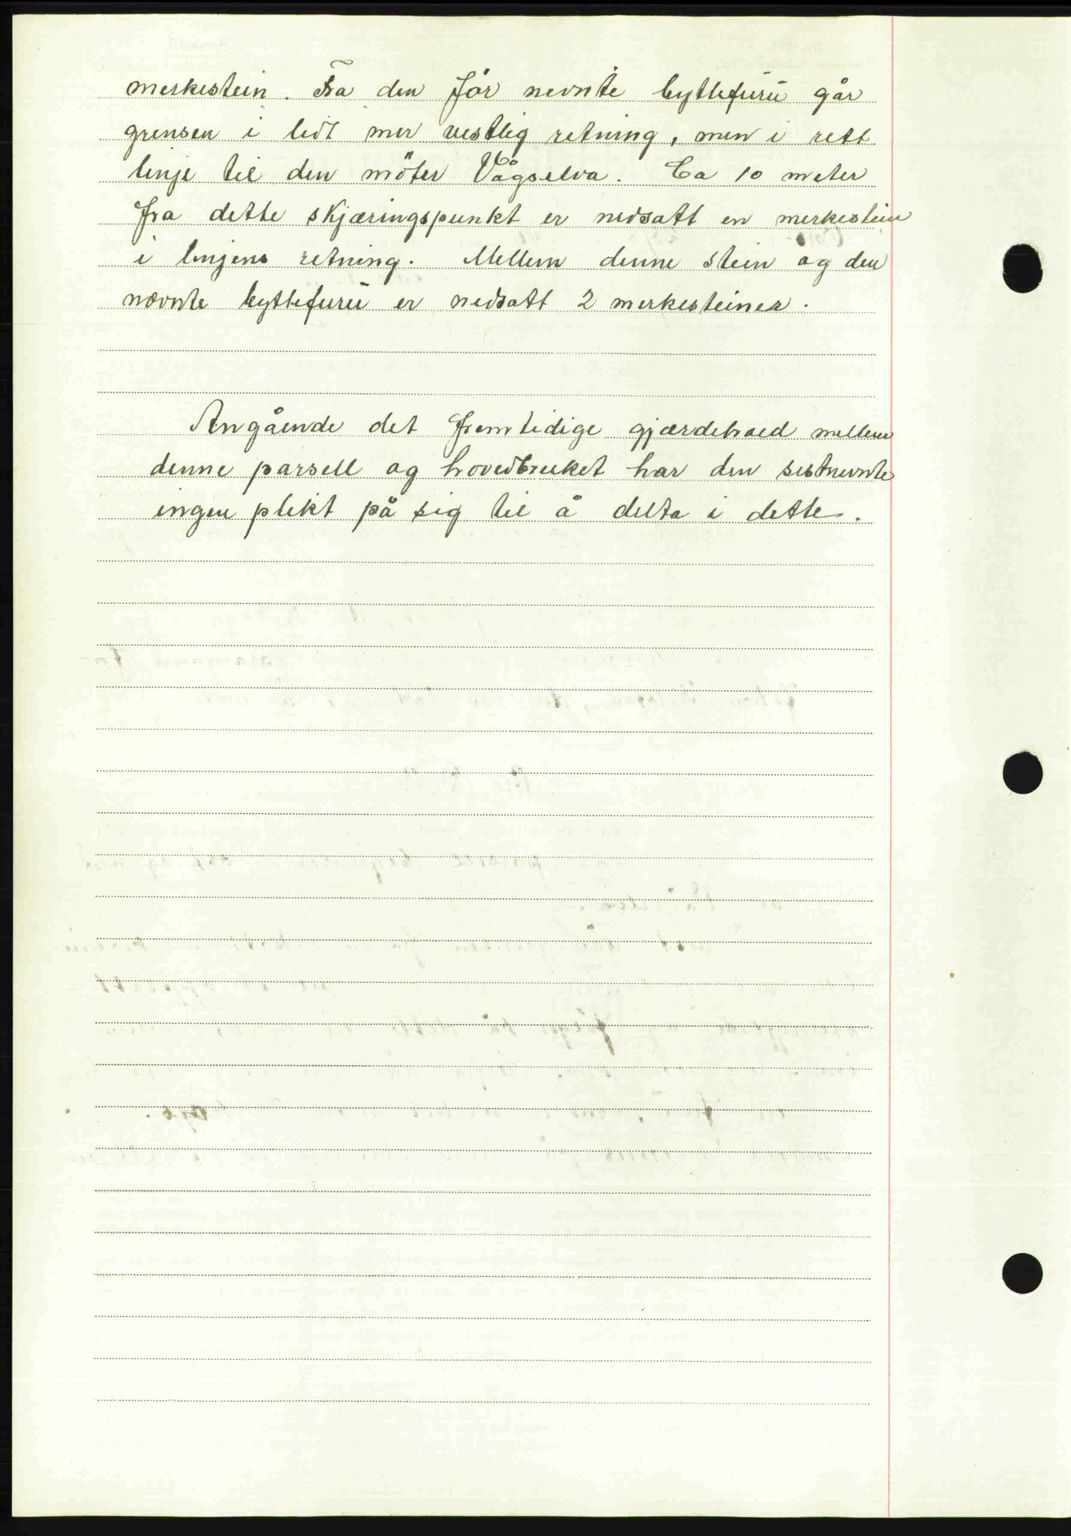 merkestein. Fra den før nevnte byttefuru går
grensen i lidt mer vestlig retning, men i rett
linje til den möter Vågselva. Ca 10 meter
fra dette skjæringspunkt er nedsatt en merkestein
i linjens retning. Mellem denne stein og den
nævnte byttefuru er nedsatt 2 merkesteiner.
Angående det fremtidige gjærdehold mellem
denne parsell og hovedbruket har den sistnevnte
ingen plikt på sig til å delta i dette.